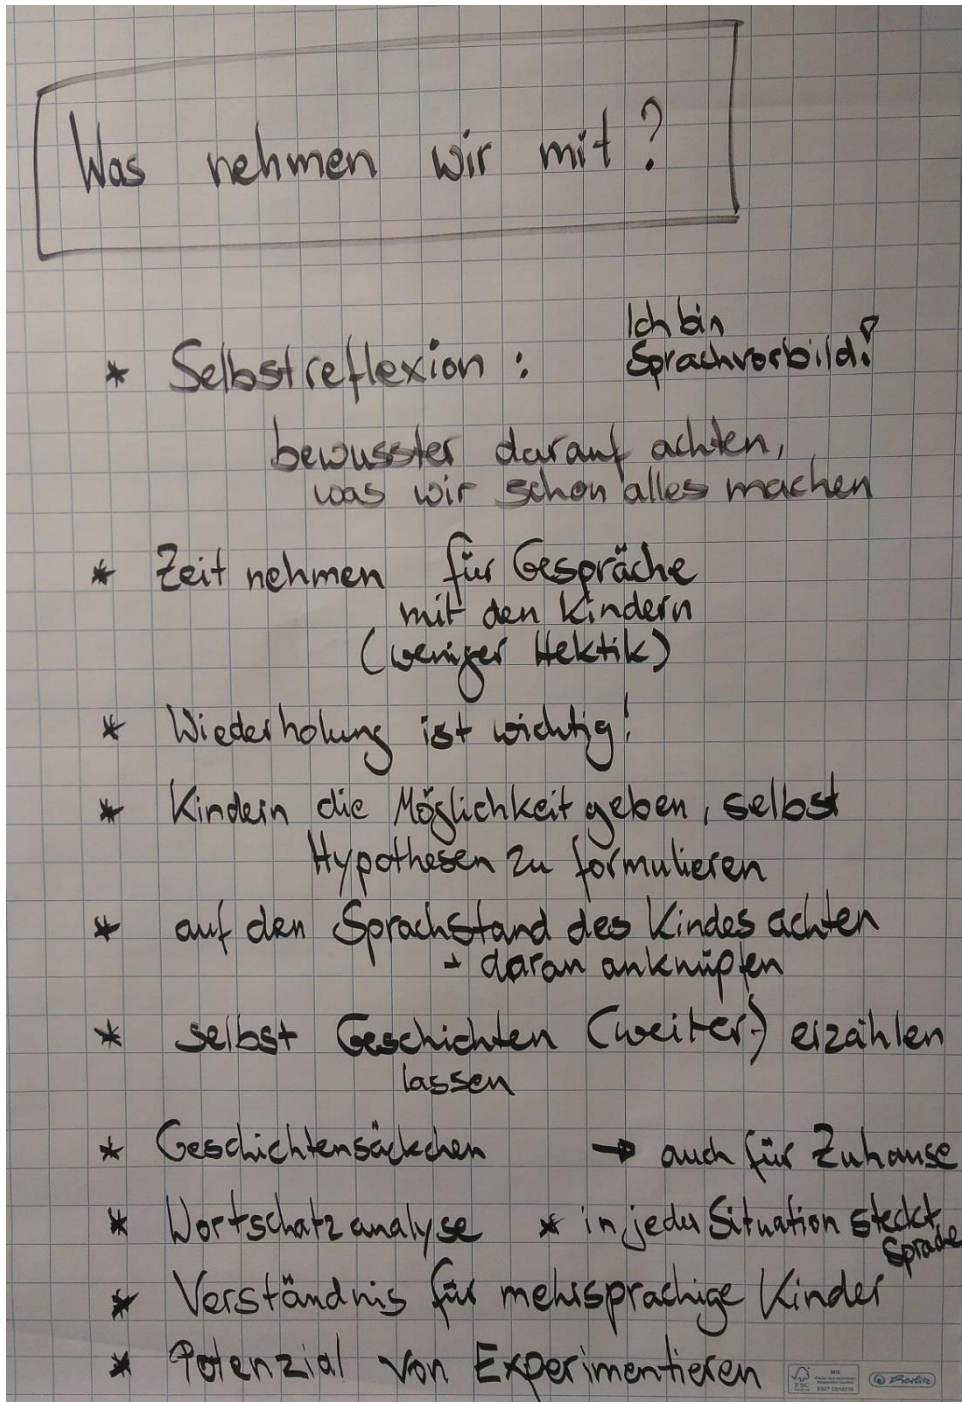 Was nehmen wir mit?
* Selbstreflexion: Ich bin
Sprachvorbild!
bewusster darauf achten,
was wir schon alles machen
* Zeit nehmen für Gespräche
mit den Kindern
(weniger Hektik)
* Wiederholung ist wichtig!
* Kindern die Möglichkeit geben, selbst
Hypothesen zu formulieren
* auf den Sprachstand des Kindes achten
+ daran anknüpfen
* selbst Geschichten (weiter-) erzählen
lassen
* Geschichtensäckchen → auch für Zuhause
* Wortschatzanalyse * in jeder Situation steckt
Sprache
* Verständnis für mehrsprachige Kinder
* Potenzial von Experimentieren
FSC MIX
Berlin